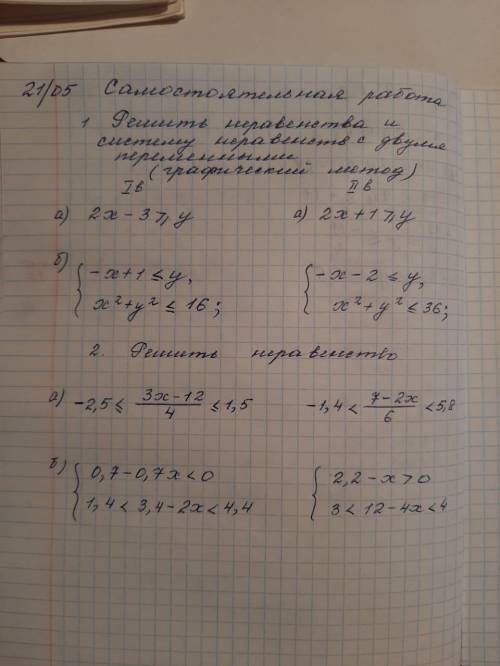 21/05 Самостоятельная работа
1 Решить неравенства и
систему неравенств с двумя
переменными
(графический метод)
I в II в
а) 2x - 3 ≥ y а) 2x + 1 ≥ y
б) { -x + 1 ≤ y, { -x - 2 ≤ y,
x² + y² ≤ 16; x² + y² ≤ 36;
2. Решить неравенство
а) -2,5 ≤ (3x - 12)/4 ≤ 1,5 -1,4 < (7 - 2x)/6 < 5,8
б) { 0,7 - 0,7x < 0 { 2,2 - x > 0
1,4 < 3,4 - 2x < 4,4 3 < 12 - 4x < 4